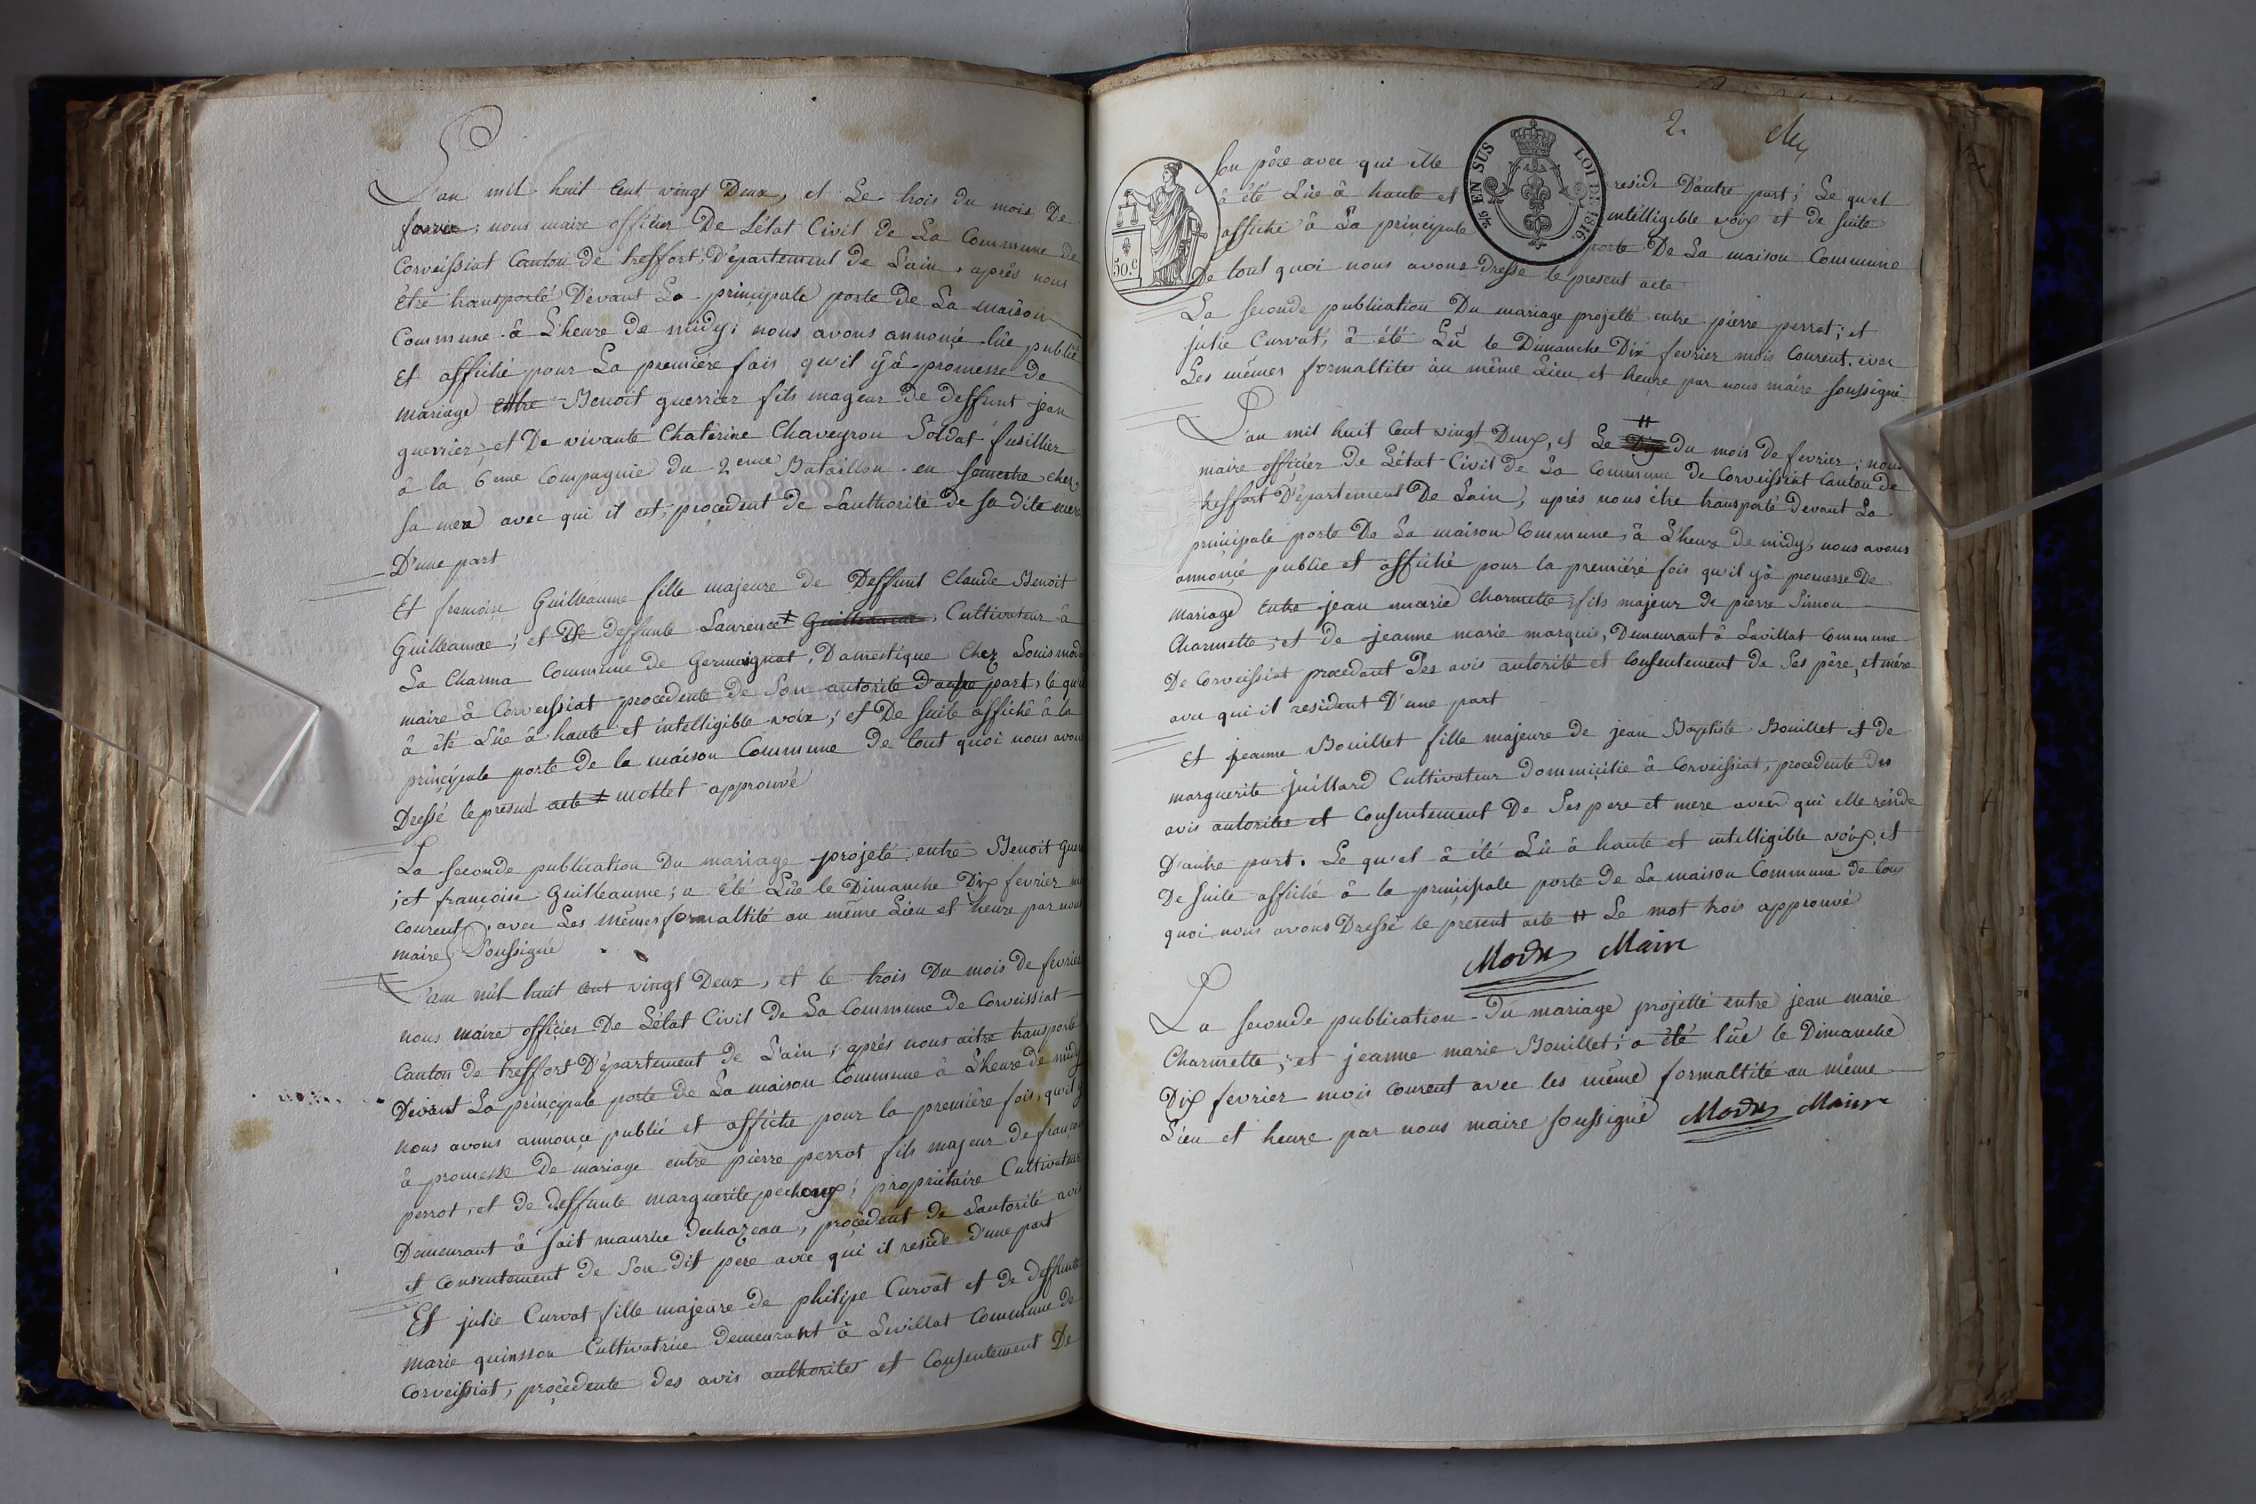 L'an mil huit Cent vingt Deux, et Le trois du mois De
fevrier; nous maire officier De L'état Civil de La Commune de
Corveissiat Canton de treffort, D'épartement de L'ain, après nous
être transporté Dévant La principale porte de La maison
Commune à L'heure de midy; nous avons annonçé lûe publié
et affiché pour La première fois qu'il ÿ à promesse de
mariage entre Benoit guerrier fils mageur de deffunt jean
guerrier, et De vivante Chatérine Chaveyron Soldat fusillier
à la 6eme Compagnie du 2eme Bataillon en semestre chez
sa mere avec qui il est proçedent de L'authorité de sa dite mere
D'une part
Et françoise Guilleaume fille majeure de Deffunt Claude Benoit
Guilleaume; et De deffunte Laurence ‡ Guilleaume, Cultivateur à
La Charma Commune de Germagnat, Domestique Chez Louis
maire à Corveissiat procedente de Son autorité D'autre part, le qu'el
à été Lûe à haute et intelligible voix; et De suite affiché à la
prinçipale porte de la maison Commune De tout quoi nous avons
Dressé le present acte ‡ mottet approuvé
La seconde publication Du mariage projeté entre Benoit
; et françoise Guilleaume; a été Lûe le Dimanche Dix fevrier
courent, avec Les mêmes formaltité au même Lieu et heure par nous
maire Soussigné
L'an mil huit cent vingt Deux, et le trois Du mois de fevrier
nous maire offiçier De L'état Civil de La Commune de Corveissiat
Canton de treffort D'épartement de L'ain; aprés nous aitre transporté
Devant La prinçipale porte de La maison Commune à L'heure de midy
nous avons annonçe publié et affiché pour la première fois, qu'il y
à promesse De mariage entre pierre perrot fils majeur de françois
perrot, et de deffunte marguerite pechoux; propriétaire Cultivateur
Demeurant à sait maurice dechazeau, proçédent de L'autorité avis
et consentement de Son dit pere avec qui il reside d'une part
Et julie Curvat fille majeure de philipe Curvat et de deffunte
marie quinsson Cultivatrice demeurant à Sevillat Commune de
Corveissiat, proçedente des avis authorites et Consentement De
2.
son père avec qui elle reside D'autre part; Le qu'el
à été Lûe à haute et intélligible voix et de suite
affiché à La prinçipale porte De La maison Commune
De tout quoi nous avons Dressé le present acte
50.c
2/5 EN SUS
LOI DE 1816.
La seconde publication Du mariage projetté entre pierre perrot; et
julie Curvat, à été Lû le Dimanche Dix fevrier mois Courent, avec
Les mêmes formaltites au même Lieu et heure par nous maire soussigné
L'an mil huit Cent vingt Deux, et Le ‡‡ Dix du mois De fevrier; nous
maire officier De L'état Civil de La Commune de Corveissiat Canton de
treffort D'épartement De L'ain, après nous être transporté Devant La
prinçipale porte De La maison Commune, à L'heure de midy, nous avons
annonçé publié et affiché pour la première fois qu'il ÿ à promesse De
mariage entre jean marie Charmette; fils majeur de pierre Simon
Charmette, et de jeanne marie marquis, Demeurant à Sevillat Commune
De Corveissiat procedant Des avis autorité et Consentement de Ses père, et mère
avec qui il résident D'une part
Et jeanne Bouillet fille majeure de jean Baptiste Bouillet et de
marguerite juillard Cultivateur Dommiçilie à Corveissiat, procedente des
avis autorités et Consentement De Ses pere et mere avec qui elle réside
D'autre part. Le qu'el à été Lû à haute et intelligible voix, et
De suite affiché à la prinçipale porte De La maison Commune de tous
quoi nous avons Dressé le present acte ‡‡ Le mot trois approuvé
Maire
La seconde publication Du mariage projetté entre jean marie
Charmette, et jeanne marie Bouillet; a été lûe le Dimanche
Dix fevrier mois courent avec les même formaltité au même
Lieu et heure par nous maire soussigné Maire